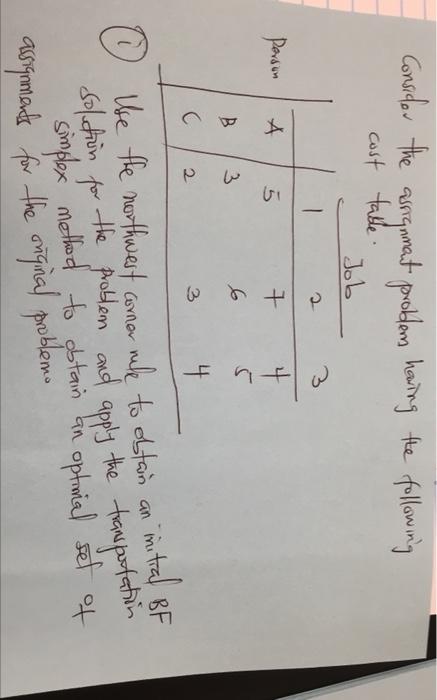 Consider the assignment problem having the following
cost table.
Job
1 2 3
Person A 5 7 4
B 3 6 5
C 2 3 4
(i) Use the northwest corner rule to obtain an initial BF
solution for the problem and apply the transportation
simplex method to obtain an optimal set of
assignments for the original problem.